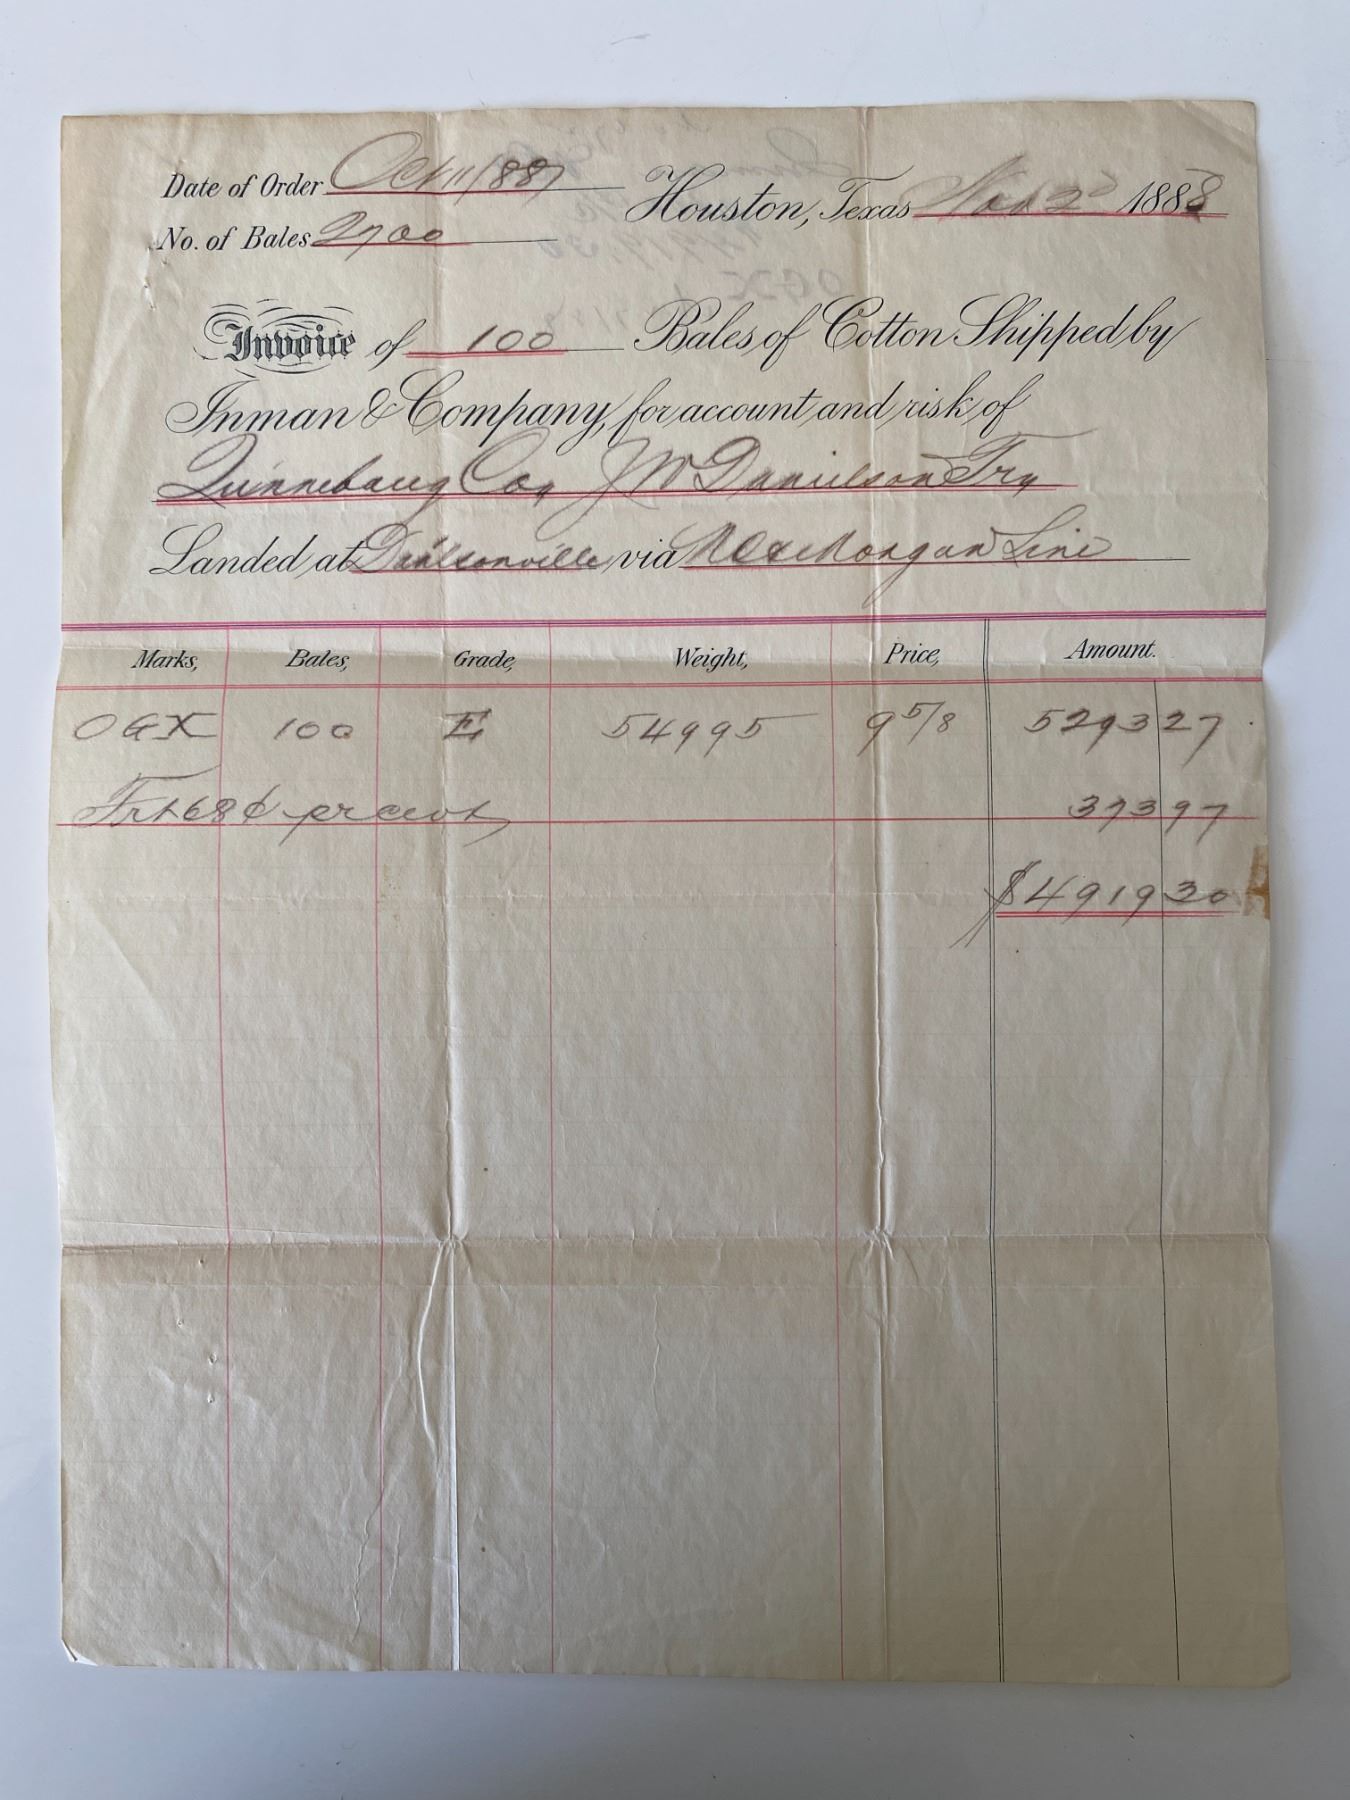 Date of Order Oct 11/887 Houston, Texas Nov 2d 1888
No. of Bales 2700
Invoice of 100 Bales of Cotton Shipped by
Inman & Company, for account and risk of
Quinnebaug Coy J W Danielson Try
Landed at Danielsonville via Morgan Line
Marks, Bales, Grade, Weight, Price, Amount.
OGX 100 E 54995 9 5/8 5293 27
Frt 68¢ pr cwt 373 97
$4919 30